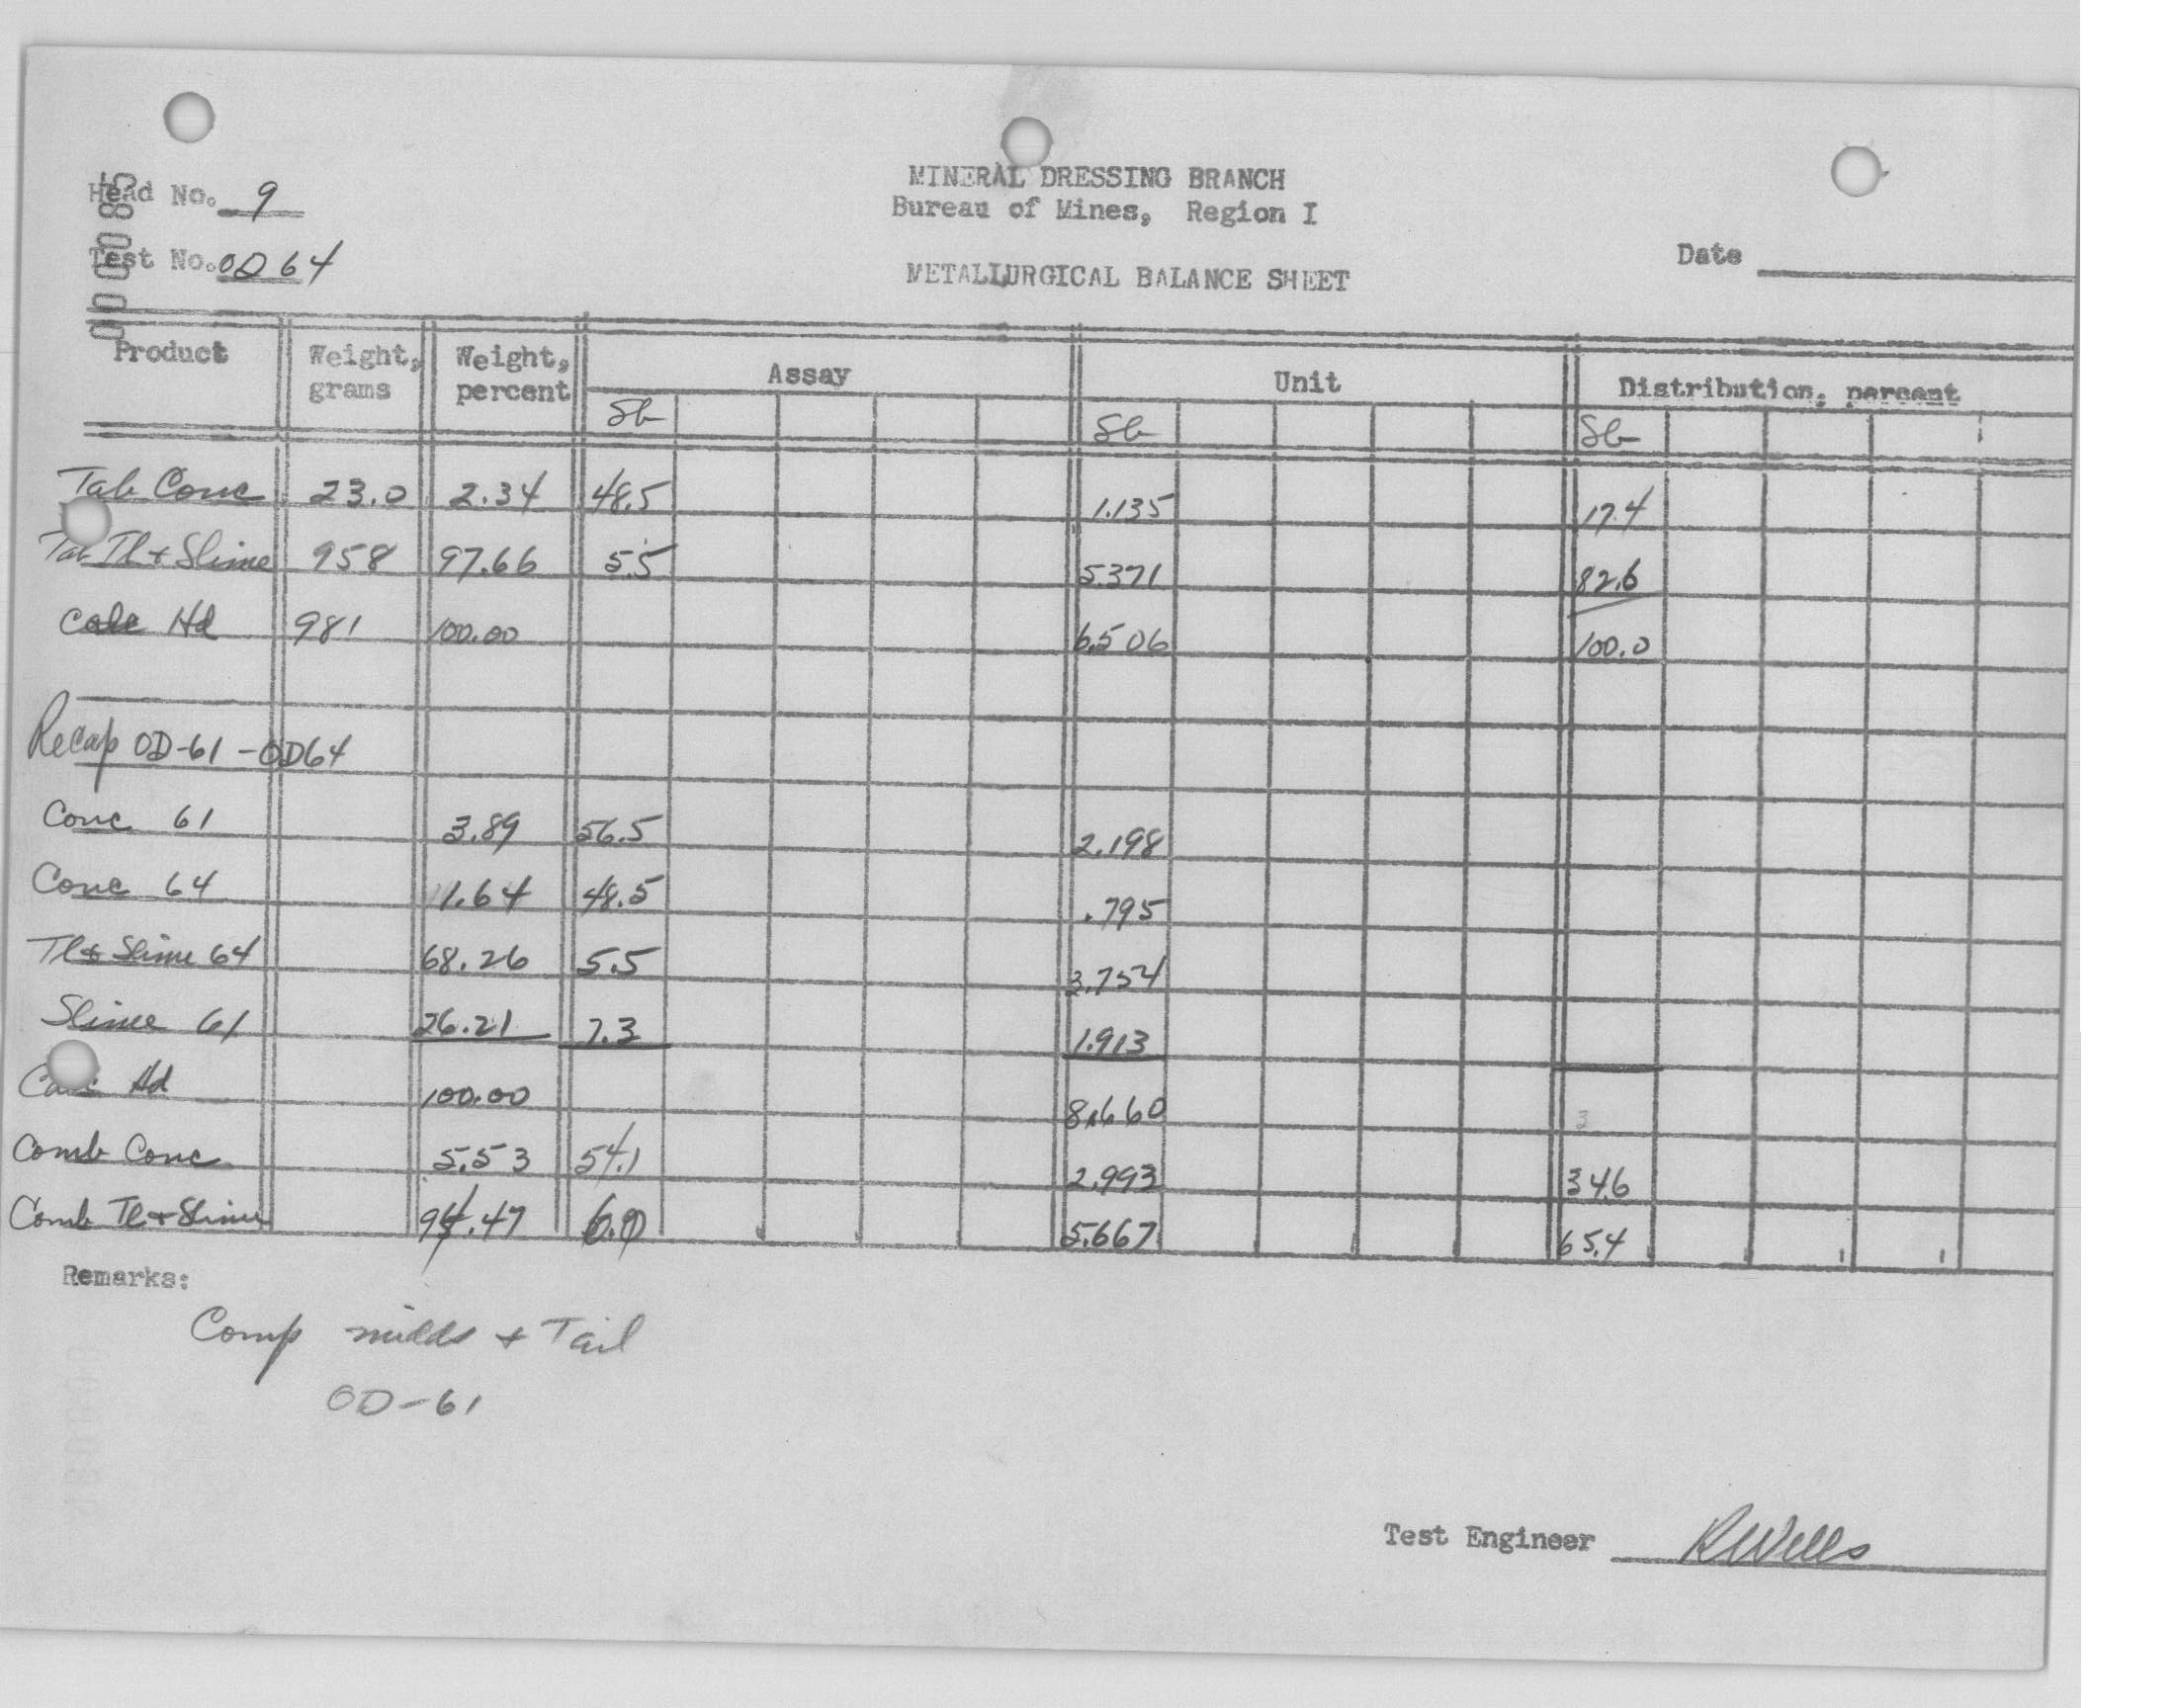 00 0085
Head No. 9
Test No. OD 64
MINERAL DRESSING BRANCH
Bureau of Mines, Region I
METALLURGICAL BALANCE SHEET
Date
Product Weight, grams Weight, percent Assay Unit Distribution, percent
Sb Sb Sb
Tab Conc 23.0 2.34 48.5 1.135 17.4
Tab Tl + Slime 958 97.66 5.5 5.371 82.6
Calc Hd 981 100.00 6.506 100.0
Recap OD-61 - OD64
Conc 61 3.89 56.5 2.198
Conc 64 1.64 48.5 .795
Tl + Slime 64 68.26 5.5 3.754
Slime 61 26.21 7.3 1.913
Calc Hd 100.00 8.660
Comb Conc 5.53 54.1 2.993 34.6
Comb Tl + Slime 94.47 6.0 5.667 65.4
Remarks:
Comp midds + Tail
OD-61
Test Engineer RWells